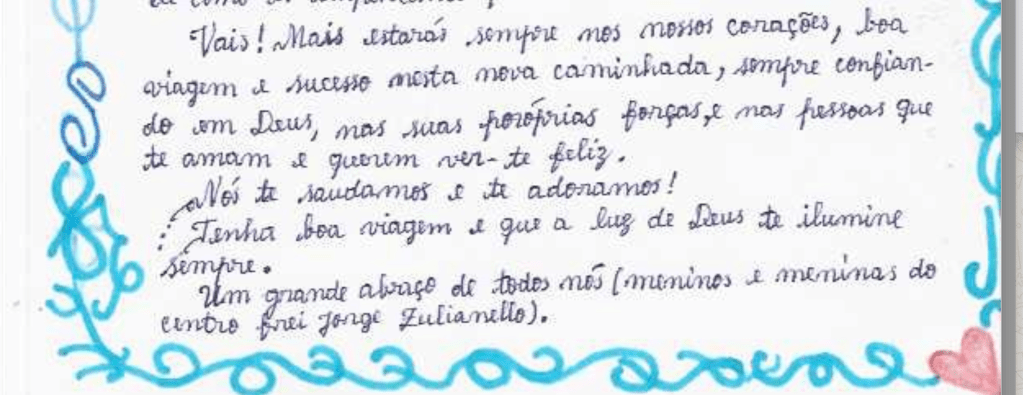 Vais! Mais estarás sempre nos nossos corações, boa
viagem e sucesso nesta nova caminhada, sempre confian-
do em Deus, nas suas poróprias forças, e nas pessoas que
te amam e querem ver-te feliz.
Nós te saudamos e te adoramos!
Tenha boa viagem e que a luz de Deus te ilumine
sempre.
Um grande abraço de todos nós (meninos e meninas do
centro frei Jorge Zulianello).